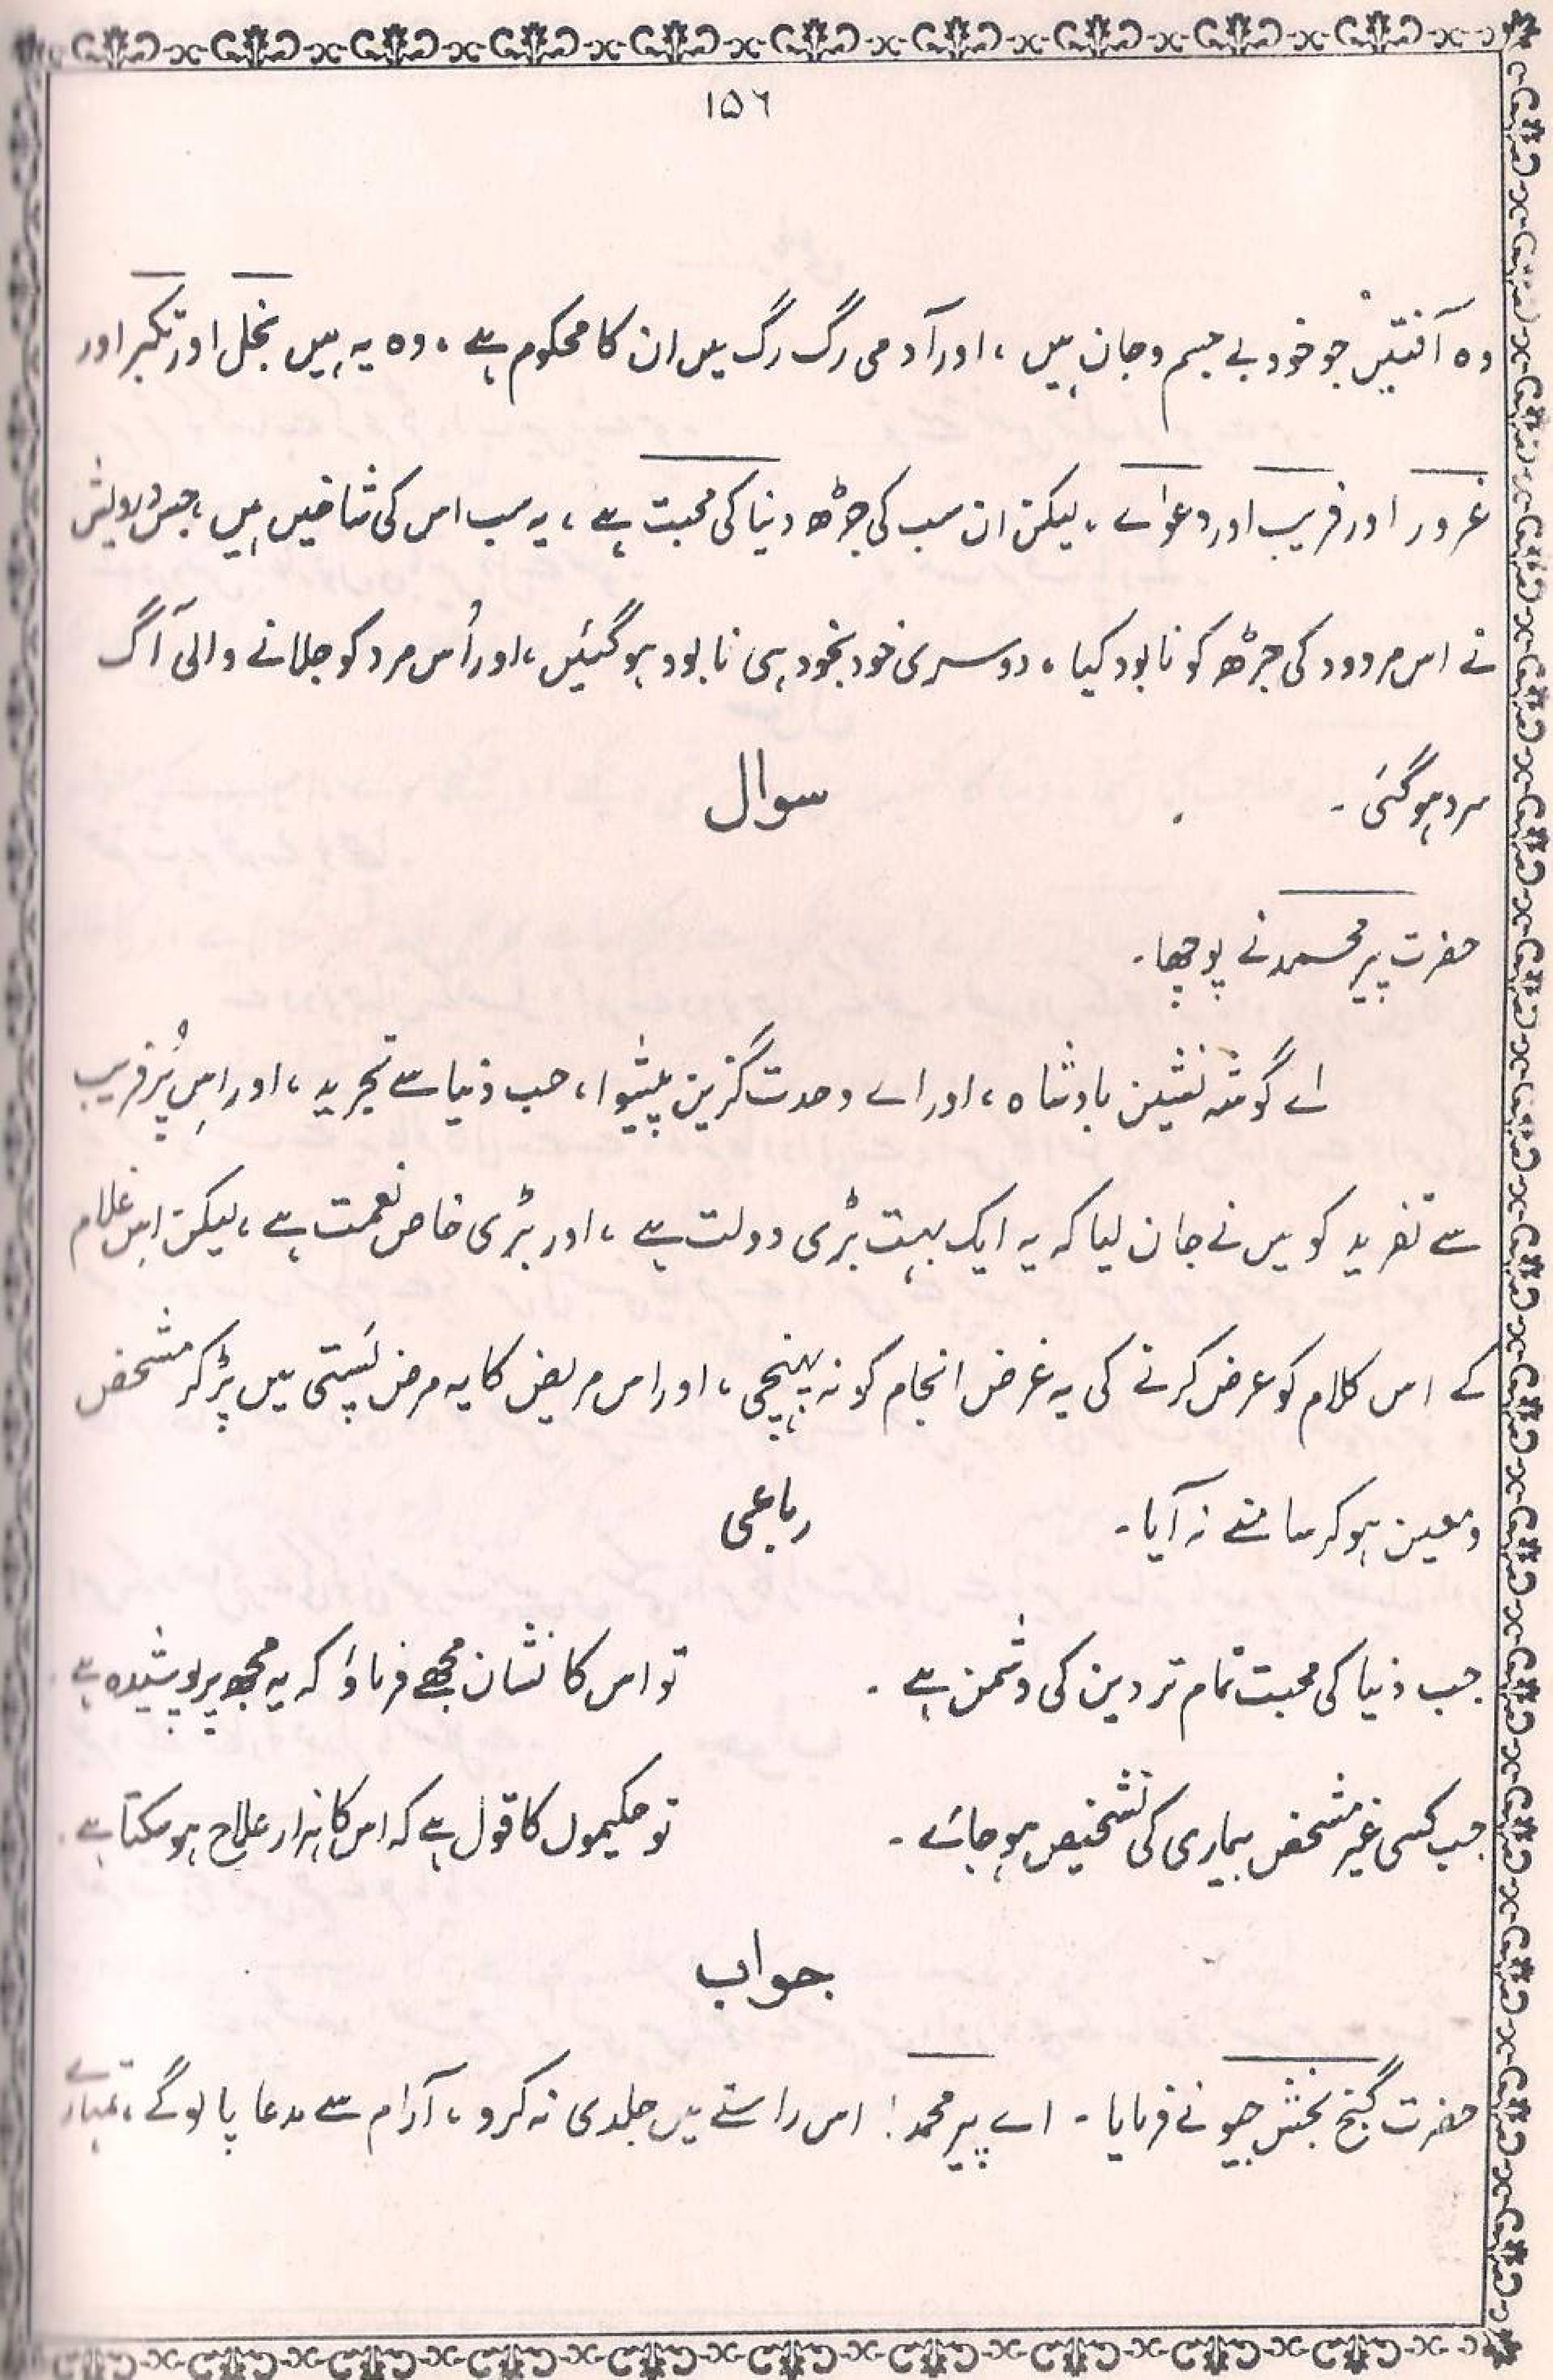 ۱۵۶
وہ آفتیں جو خود بے جسم و جان ہیں ، اور آدمی رگ رگ میں ان کا محکوم ہے ، وہ یہ ہیں بخل اور تکبر اور
غرور اور فریب اور دعوٰے ، لیکن ان سب کی جڑھ دنیا کی محبت ہے ، یہ سب اس کی شاخیں ہیں ، جس درویش
نے اس مردود کی جڑھ کو نابود کیا ، دوسری خود بخود ہی نابود ہو گئیں ، اور اُس مرد کو جلانے والی آگ
سرد ہو گئی ۔
سوال
حضرت پیر محمد نے پوچھا ۔
اے گوشہ نشین بادشاہ ، اور اے وحدت گزین پیشوا ، حب دنیا سے تجرید ، اور اِس پُر فریب
سے تفرید کو میں نے جان لیا کہ یہ ایک بہت بڑی دولت ہے ، اور بڑی خاص نعمت ہے ، لیکن اِس غلام
کے اس کلام کو عرض کرنے کی یہ غرض انجام کو نہ پہنچی ، اور اس مریض کا یہ مرض پَستی میں پڑ کر مشخص
و معین ہو کر سامنے نہ آیا ۔
رباعی
جب دنیا کی محبت تمام تر دین کی دشمن ہے ۔ تو اس کا نشان مجھے فرماؤ کہ یہ مجھ پر پوشیدہ ہے ۔
جب کسی غیر مشخص بیماری کی تشخیص ہو جائے ۔ تو حکیموں کا قول ہے کہ اس کا ہزار علاج ہو سکتا ہے ۔
جواب
حضرت گنج بخش جیو نے فرمایا ۔ اے پیر محمد ! اس راستے میں جلدی نہ کرو ، آرام سے مدعا پا لو گے ، تمہارے